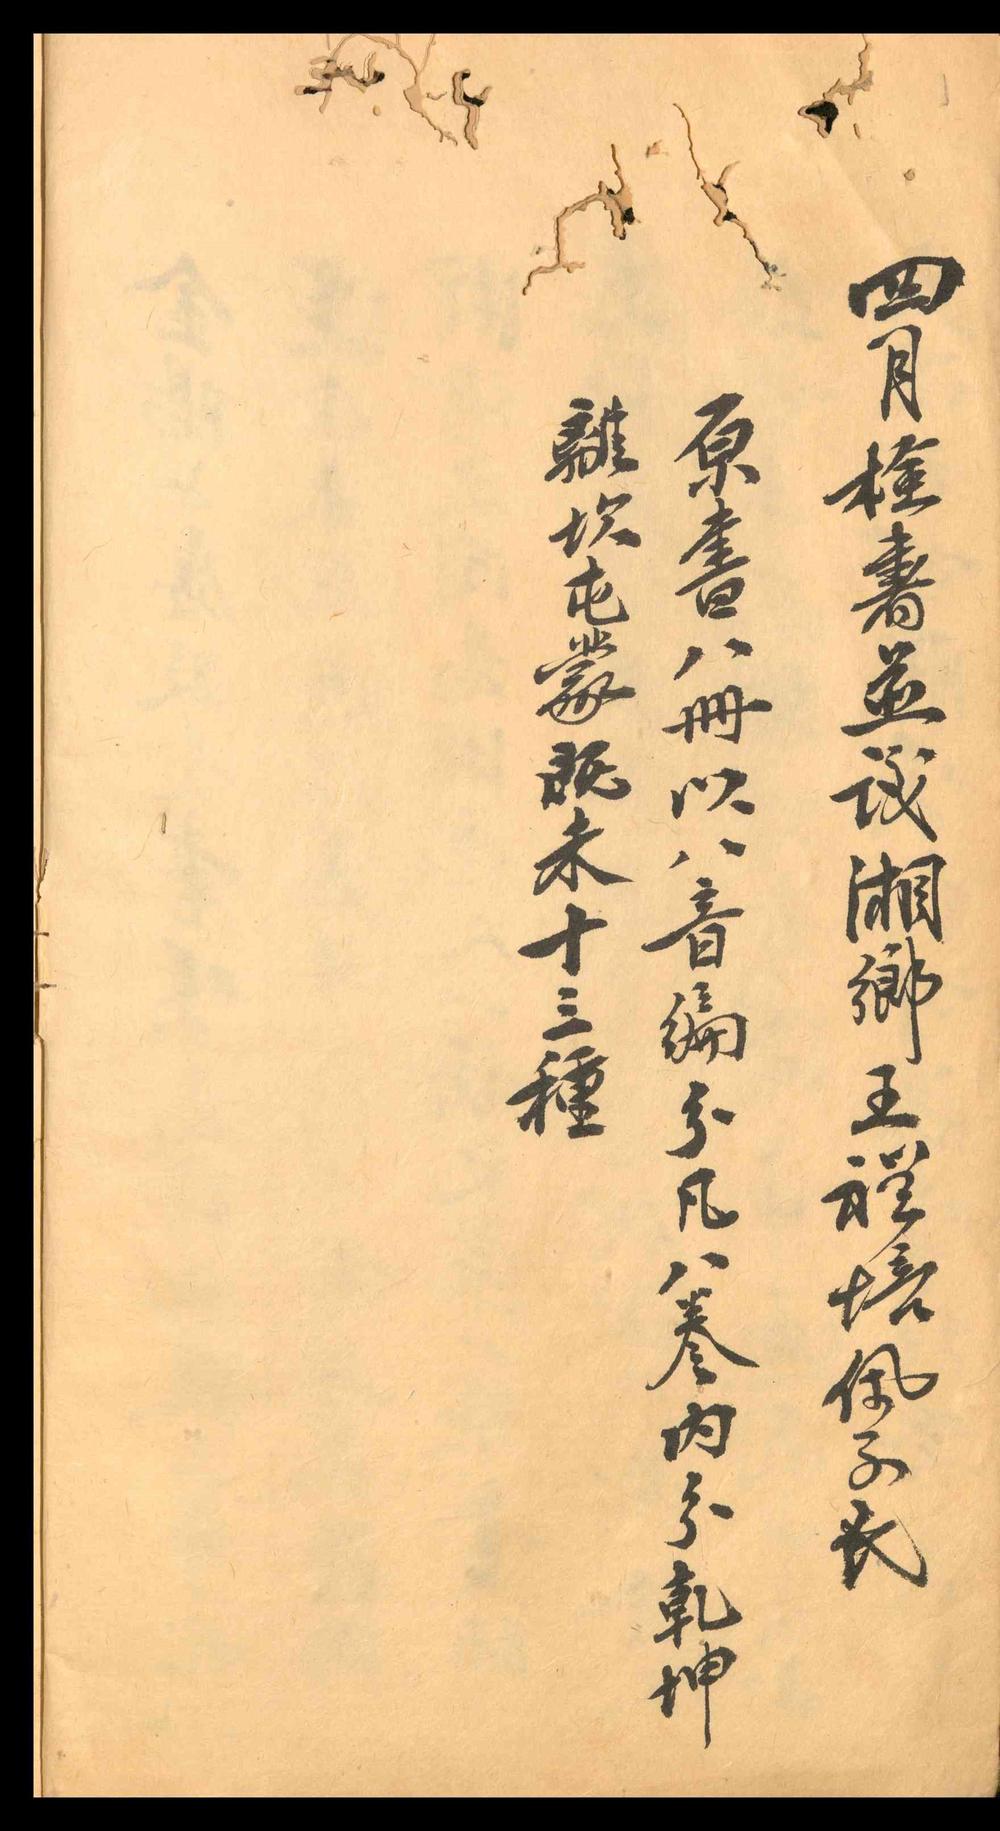 四月檢書並識湘鄉王禮培佩子氏
原書八冊以八音編分凡八卷內分乾坤
離坎屯蒙既未十三種